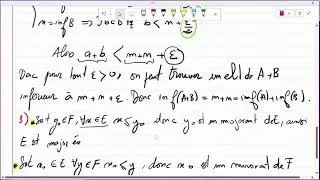 n = inf B ⇒ ∃ b ∈ B / b < n + ε/2
Alors a+b < m+n+ε
Donc pour tout ε>0, on peut trouver un elt de A+B
inférieur à m+n+ε. Donc inf(A+B) = m+n = inf(A)+inf(B).
3) • Soit y₀∈F, ∀x∈E x≤y₀ donc y₀ est un majorant de E, ainsi
E est majorée
• Soit x₀∈E ∀y∈F x₀≤y, donc x₀ est un minorant de F